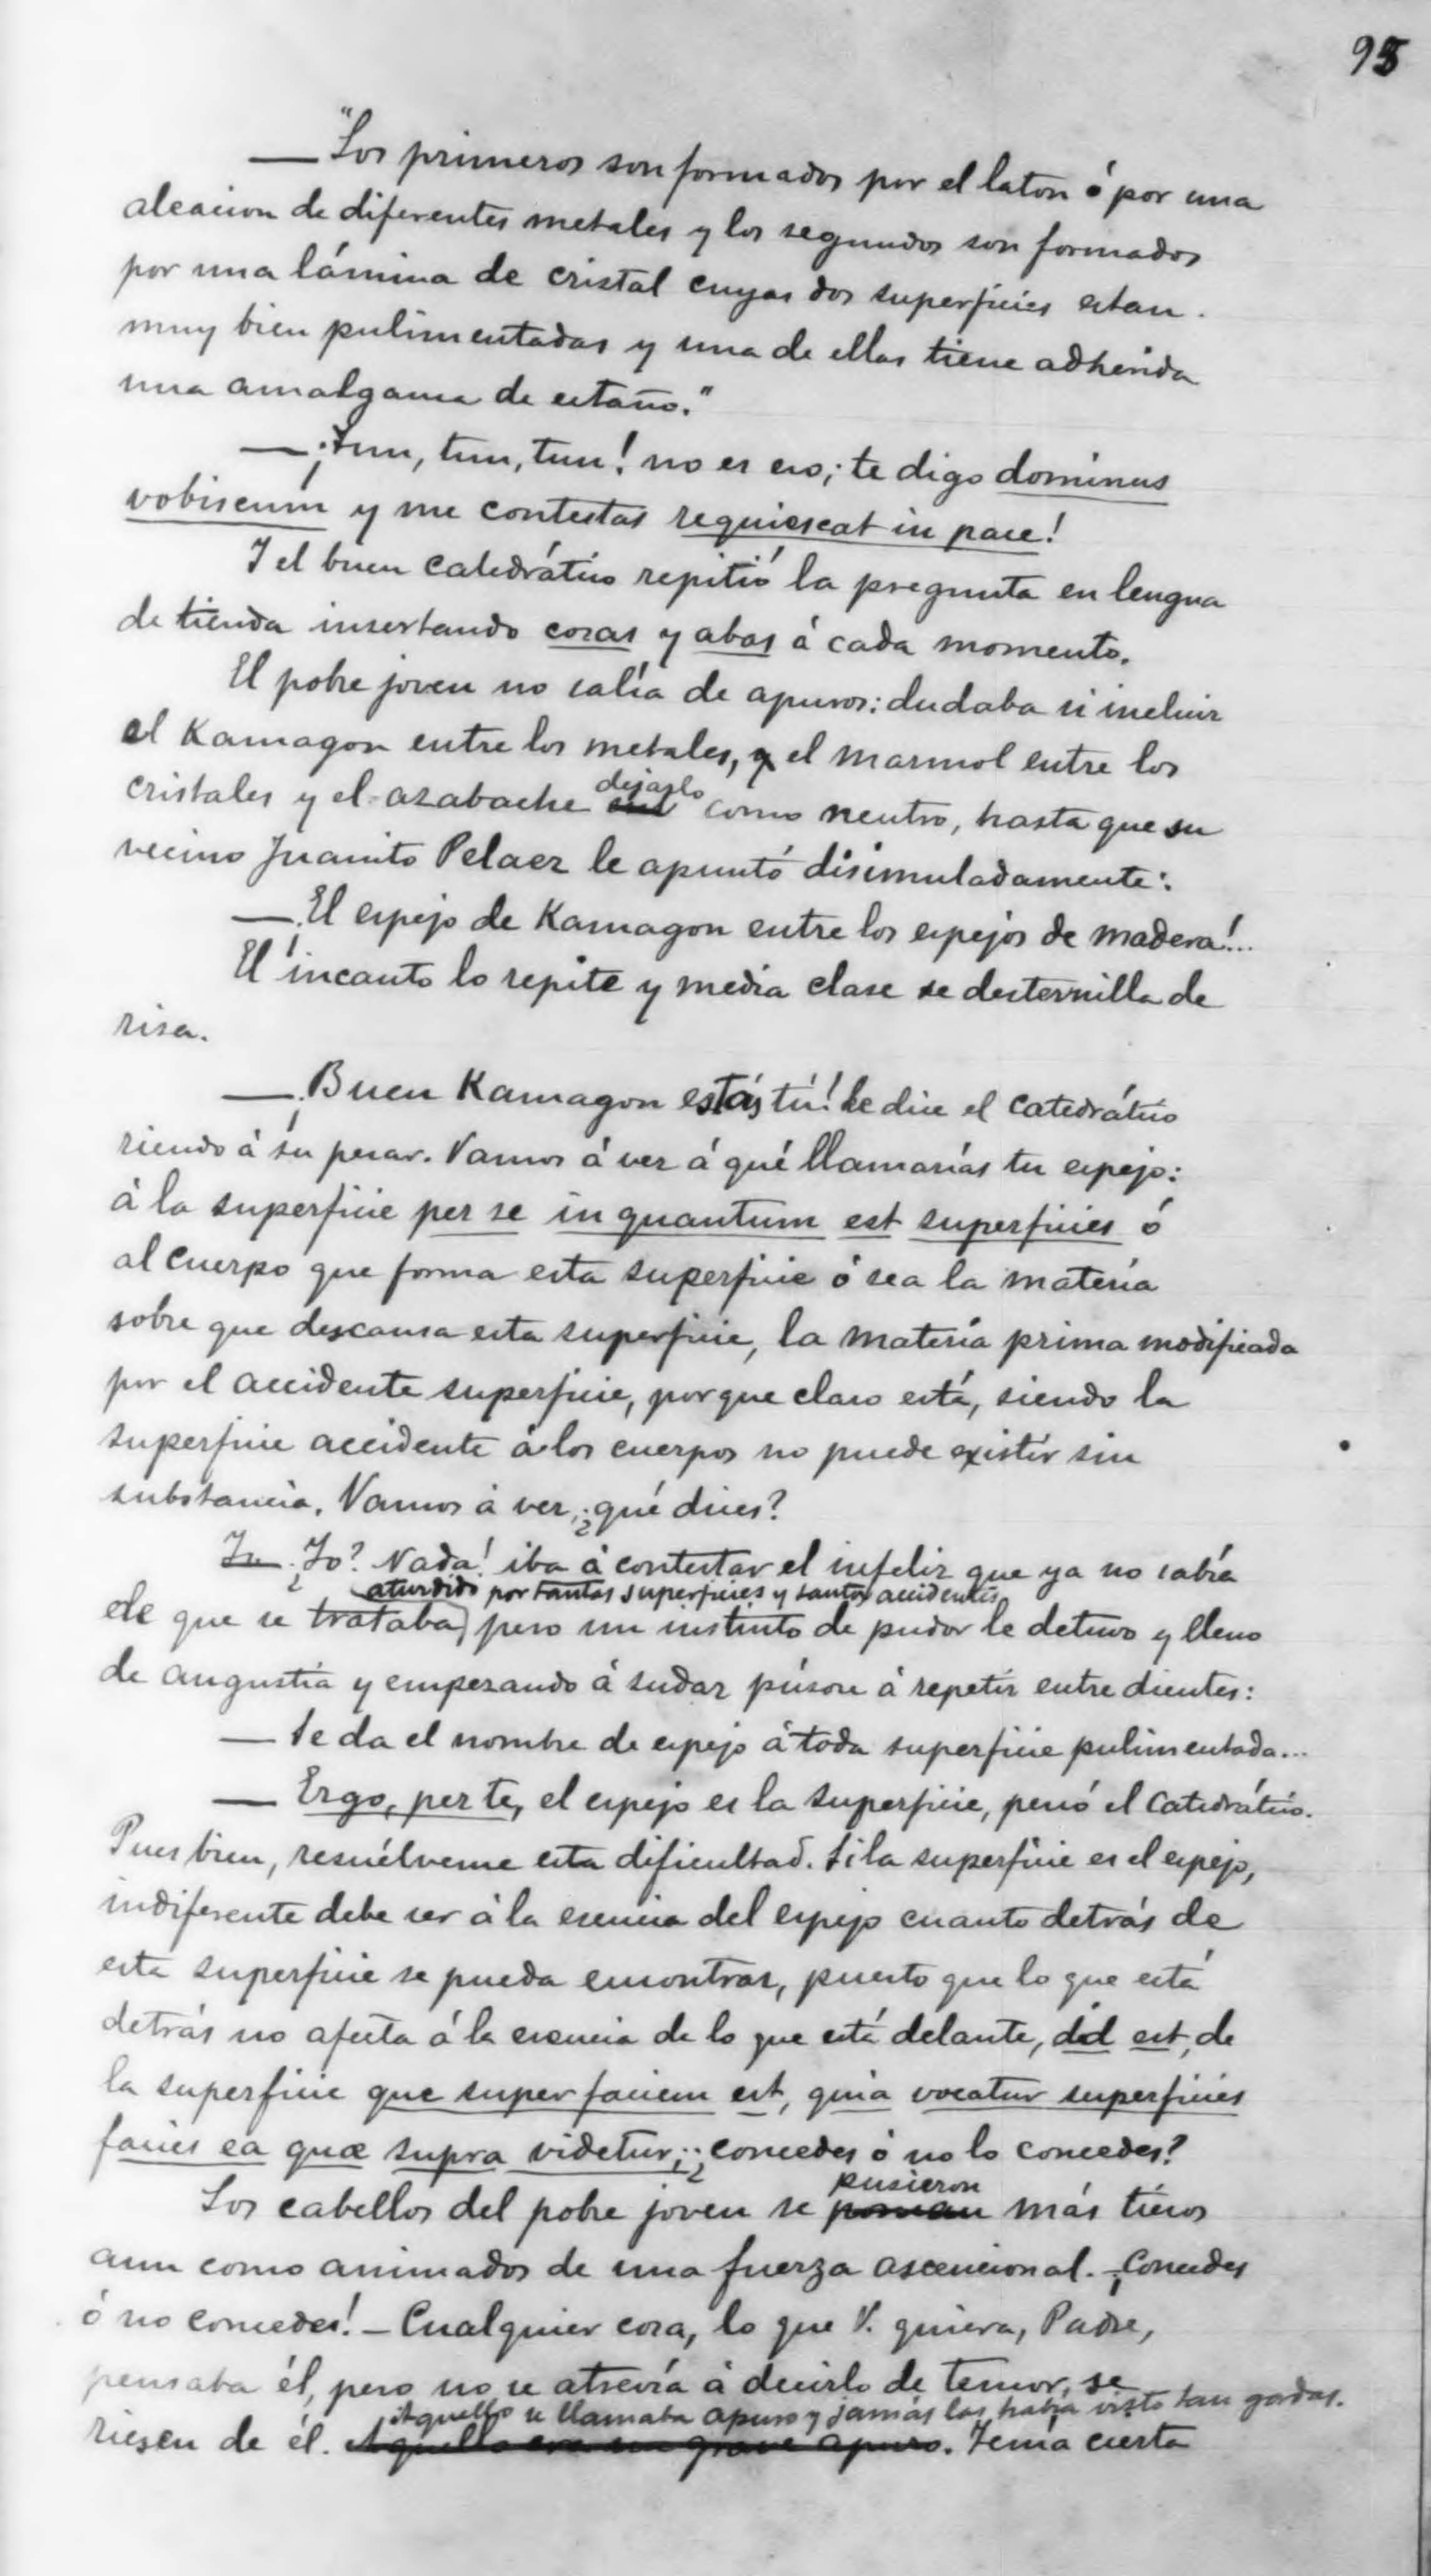 95
—"Los primeros son formados por el laton ó por una
aleacion de diferentes metales y los segundos son formados
por una lámina de cristal cuyas dos superficies estan
muy bien pulimentadas y una de ellas tiene adherida
una amalgama de estaño."
—¡Tun, tun, tun! no es eso; te digo dominus
vobiscum y me contestas requiescat in pace!
Y el buen catedrático repitió la pregunta en lengua
de tienda insertando cosas y abas á cada momento.
El pobre joven no salía de apuros: dudaba si incluir
el Kamagon entre los metales, y el marmol entre los
cristales y el azabache dejarlo como neutro, hasta que su
vecino Juanito Pelaez le apuntó disimuladamente:
—¡El espejo de Kamagon entre los espejos de madera!...
El incauto lo repite y media clase se desternilla de
risa.
—¡Buen Kamagon estás tú! le dice el catedrático
riendo á su pesar. Vamos á ver á qué llamarías tu espejo:
á la superficie per se in quantum est superficies ó
al cuerpo que forma esta superficie ó sea la materia
sobre que descansa esta superficie, la materia prima modificada
por el accidente superficie, porque claro está, siendo la
superficie accidente á los cuerpos no puede existir sin
substancia. Vamos á ver, ¿qué dices?
¿Yo? Nada! iba á contestar el infeliz que ya no sabía
aturdido por tantas superficies y tantos accidentes
de que se trataba, pero un instinto de pudor le detuvo y lleno
de angustia y empezando á sudar púsose á repetir entre dientes:
— Se da el nombre de espejo á toda superficie pulimentada...
— Ergo, per te, el espejo es la superficie, pescó el catedrático.
Pues bien, resuélveme esta dificultad. Si la superficie es el espejo,
indiferente debe ser á la esencia del espejo cuanto detrás de
esta superficie se pueda encontrar, puesto que lo que está
detrás no afecta á la esencia de lo que está delante, id est, de
la superficie que super faciem est, quia vocatur superficies
facies ea quæ supra videtur; ¿concedes ó no lo concedes?
pusieron
Los cabellos del pobre joven se ponian más tiesos
aun como animados de una fuerza ascencional. —¡Concedes
ó no concedes! — Cualquier cosa, lo que V. quiera, Padre,
pensaba él, pero no se atrevía á decirlo de temor, se
Aquello se llamaba apuro y jamás las había visto tan gordas.
riesen de él. Aquello era un grave apuro. Tenía cierta